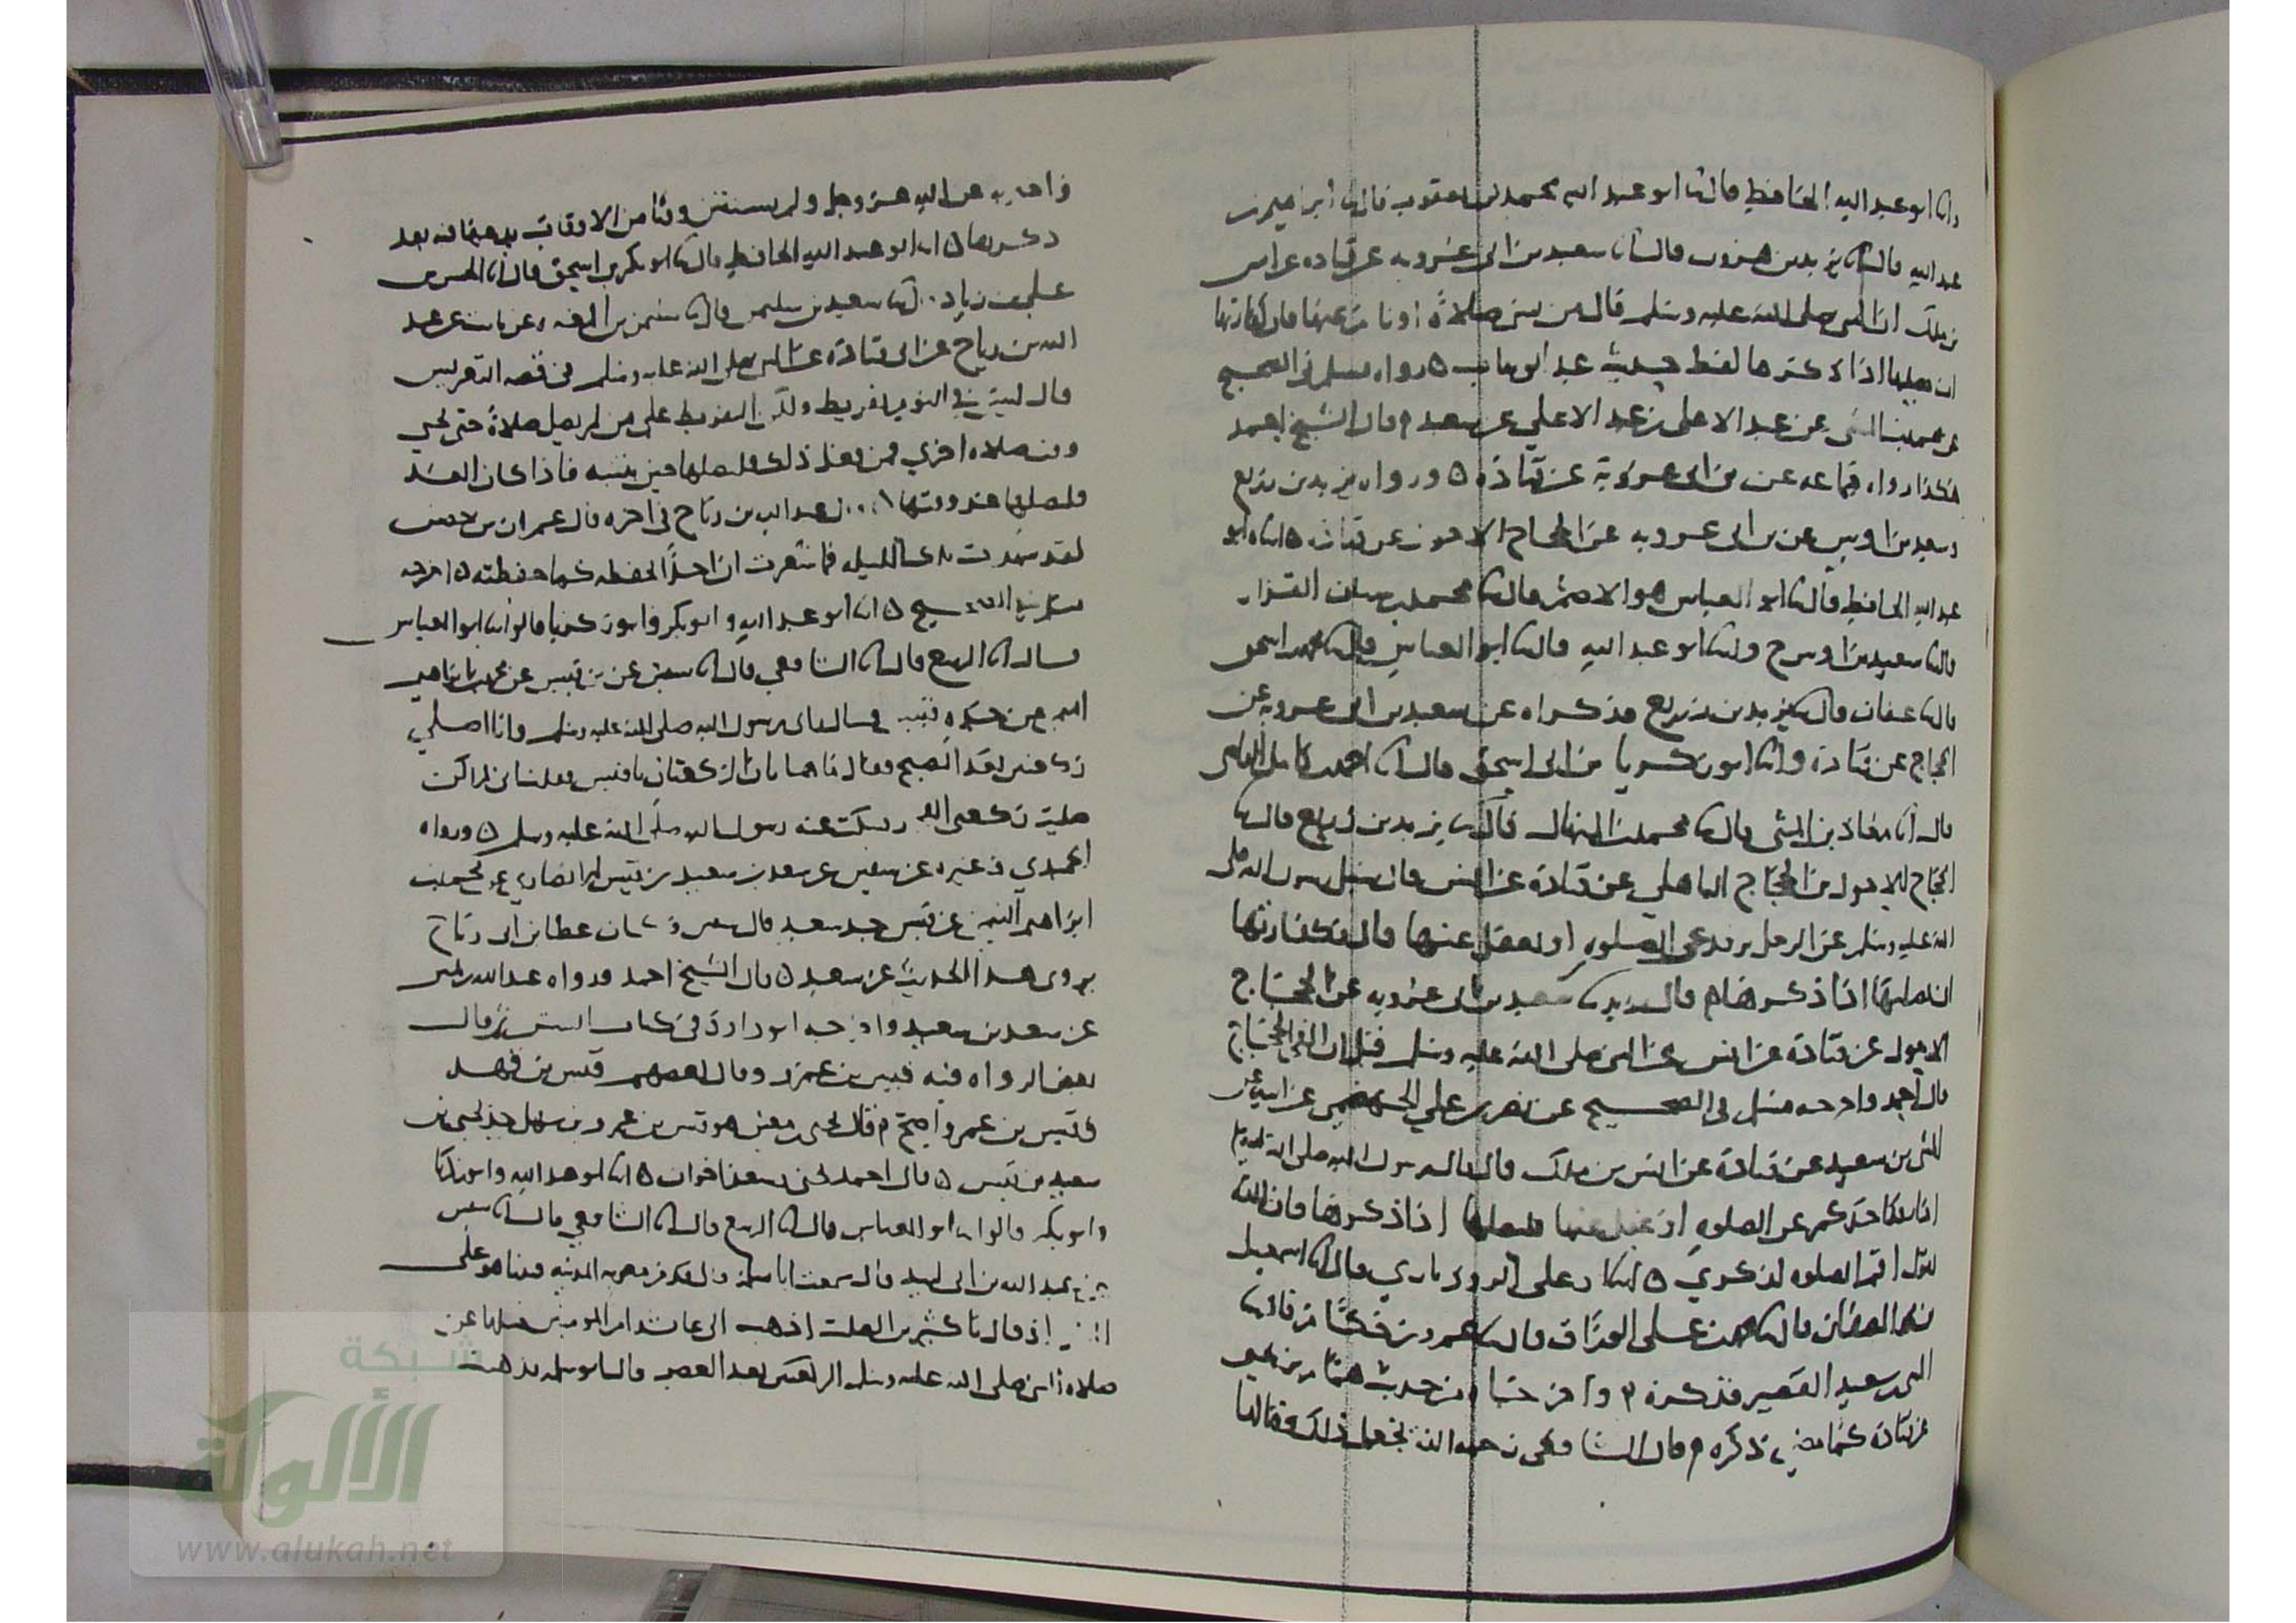 وانا ابو عبد الله الحافظ قال ثنا ابو عبد الله محمد بن يعقوب قال ثنا ابرهيم بن
عبد الله قال ثنا يزيد بن هرون قال انا سعيد بن ابي عروبه عن قتاده عن انس
بن ملك ان النبي صلى الله عليه وسلم قال من نسي صلاة او نام عنها فان كفارتها
ان يصليها اذا ذكرها لفظ حديث عبد الوهاب ه رواه مسلم في الصحيح
عن محمد بن المثنى عن عبد الاعلى بن عبد الاعلى عن سعيد م قال الشيخ احمد
هكذا رواه جماعه عن بن ابي عروبة عن قتاده ه ورواه يزيد بن زريع
وسعيد بن اوس عن بن ابي عروبه عن الحجاج الاحول عن قتاده ه انباه ابو
عبد الله الحافظ قال ثنا ابو العباس هو الاصم قال ثنا محمد بن سنان القزاز
قال ثنا سعيد بن اوس ح وانا ابو عبد الله قال ثنا ابو العباس قال ثنا محمد بن اسحق
قال ثنا عفان قال ثنا يزيد بن زريع فذكراه عن سعيد بن ابي عروبه عن
الحجاج عن قتادة وانا ابو زكريا بن ابي اسحق قال انا احمد بن كامل القاضي
قال انا معاذ بن المثنى قال ثنا محمد بن المنهال قال ثنا يزيد بن زريع قال ثنا
الحجاج الاحول بن الحجاج الباهلي عن قتادة عن انس قال سئل رسول الله صلى
الله عليه وسلم عن الرجل يرقد عن الصلوه او يغفل عنها قال فكفارتها
ان يصليها اذا ذكرها م قال يزيد ثنا سعيد بن ابي عروبه عن الحجاج
الاحول عن قتادة عن انس عن النبي صلى الله عليه وسلم الحجاج
قال احمد واخرجه مسلم في الصحيح عن نصر بن علي الجهضمي عن ابيه عن
المثنى بن سعيد عن قتادة عن انس بن ملك قال قال رسول الله صلى الله عليه وسلم
اذا رقد احدكم عن الصلوه او غفل عنها فليصلها اذا ذكرها فان الله
يقول اقم الصلوه لذكري ه انبا ابو علي الروذباري قال انا اسمعيل
بن محمد الصفار قال ثنا محمد بن علي الوراق قال ثنا عمرو بن حكام قال ثنا
المثنى بن سعيد القصير فذكره م واخرجناه من حديث همام بن يحيى
عن قتادة كما مضى ذكره م قال الشافعي رحمه الله فجعل ذلك وقتا لها
واخبر به عن الله عز وجل ولم يستثن وقتا من الاوقات يدعها فيه بعد
ذكرها ه انا ابو عبد الله الحافظ قال ثنا ابو بكر بن اسحق قال انا الحسن بن
علي بن زياد قال ثنا سعيد بن سليمن قال ثنا سليمن بن المغيره عن ثابت عن عبد
الله بن رباح عن ابي قتادة عن النبي صلى الله عليه وسلم في قصه التعريس
قال ليس في النوم تفريط ولكن التفريط على من لم يصل صلاة حتى يجي
وقت صلاه اخري فمن فعل ذلك فليصلها حين ينتبه فاذا كان الغد
فليصلها عند وقتها قال عبد الله بن رباح في اخره قال عمران بن حصين
لقد شهدت تلك الليله فما شعرت ان احدا حفظه كما حفظته ه اخرجه
مسلم في الصحيح ه انا ابو عبد الله وابو بكر وابو زكريا قالوا انا ابو العباس
قال انا الربيع قال انا الشافعي قال انا سفين عن بن قيس عن محمد بن ابراهيم
التيمي عن جده قيس قال راني رسول الله صلى الله عليه وسلم وانا اصلي
ركعتين بعد الصبح فقال ما هاتان الركعتان يا قيس فقلت اني لم اكن
صليت ركعتي الفجر فسكت عنه رسول الله صلى الله عليه وسلم ه ورواه
الحميدي وغيره عن سفين عن سعد بن سعيد بن قيس الانصاري عن محمد بن
ابراهيم التيمي عن قيس جد سعيد قال سفين وكان عطا بن ابي رباح
يروي هذا الحديث عن سعيد ه قال الشيخ احمد ورواه عبد الله بن نمير
عن سعد بن سعيد واخرجه ابو داود في كتاب السنن ثم قال
بعض الرواه فيه قيس بن عمرو وقال بعضهم قيس بن قهد
وقيس بن عمرو اصح م قال يحيى بن معين هو قيس بن عمرو بن سهل جد يحيى بن
سعيد بن قيس ه قال احمد يحيى وسعد اخوان ه انا ابو عبد الله وابو زكريا
وابو بكر قالوا انا ابو العباس قال انا الربيع قال انا الشافعي قال انا سفين
عن عبد الله بن ابي لبيد قال سمعت ابا سلمة قال قدم معويه المدينه فبينا هو على
المنبر اذ قال يا كثير بن الصلت اذهب الى عائشة ام المومنين فسلها عن
صلاه النبي صلى الله عليه وسلم الركعتين بعد العصر قال ابو سلمه فذهبت
شبكة
الألوكة
www.alukah.net